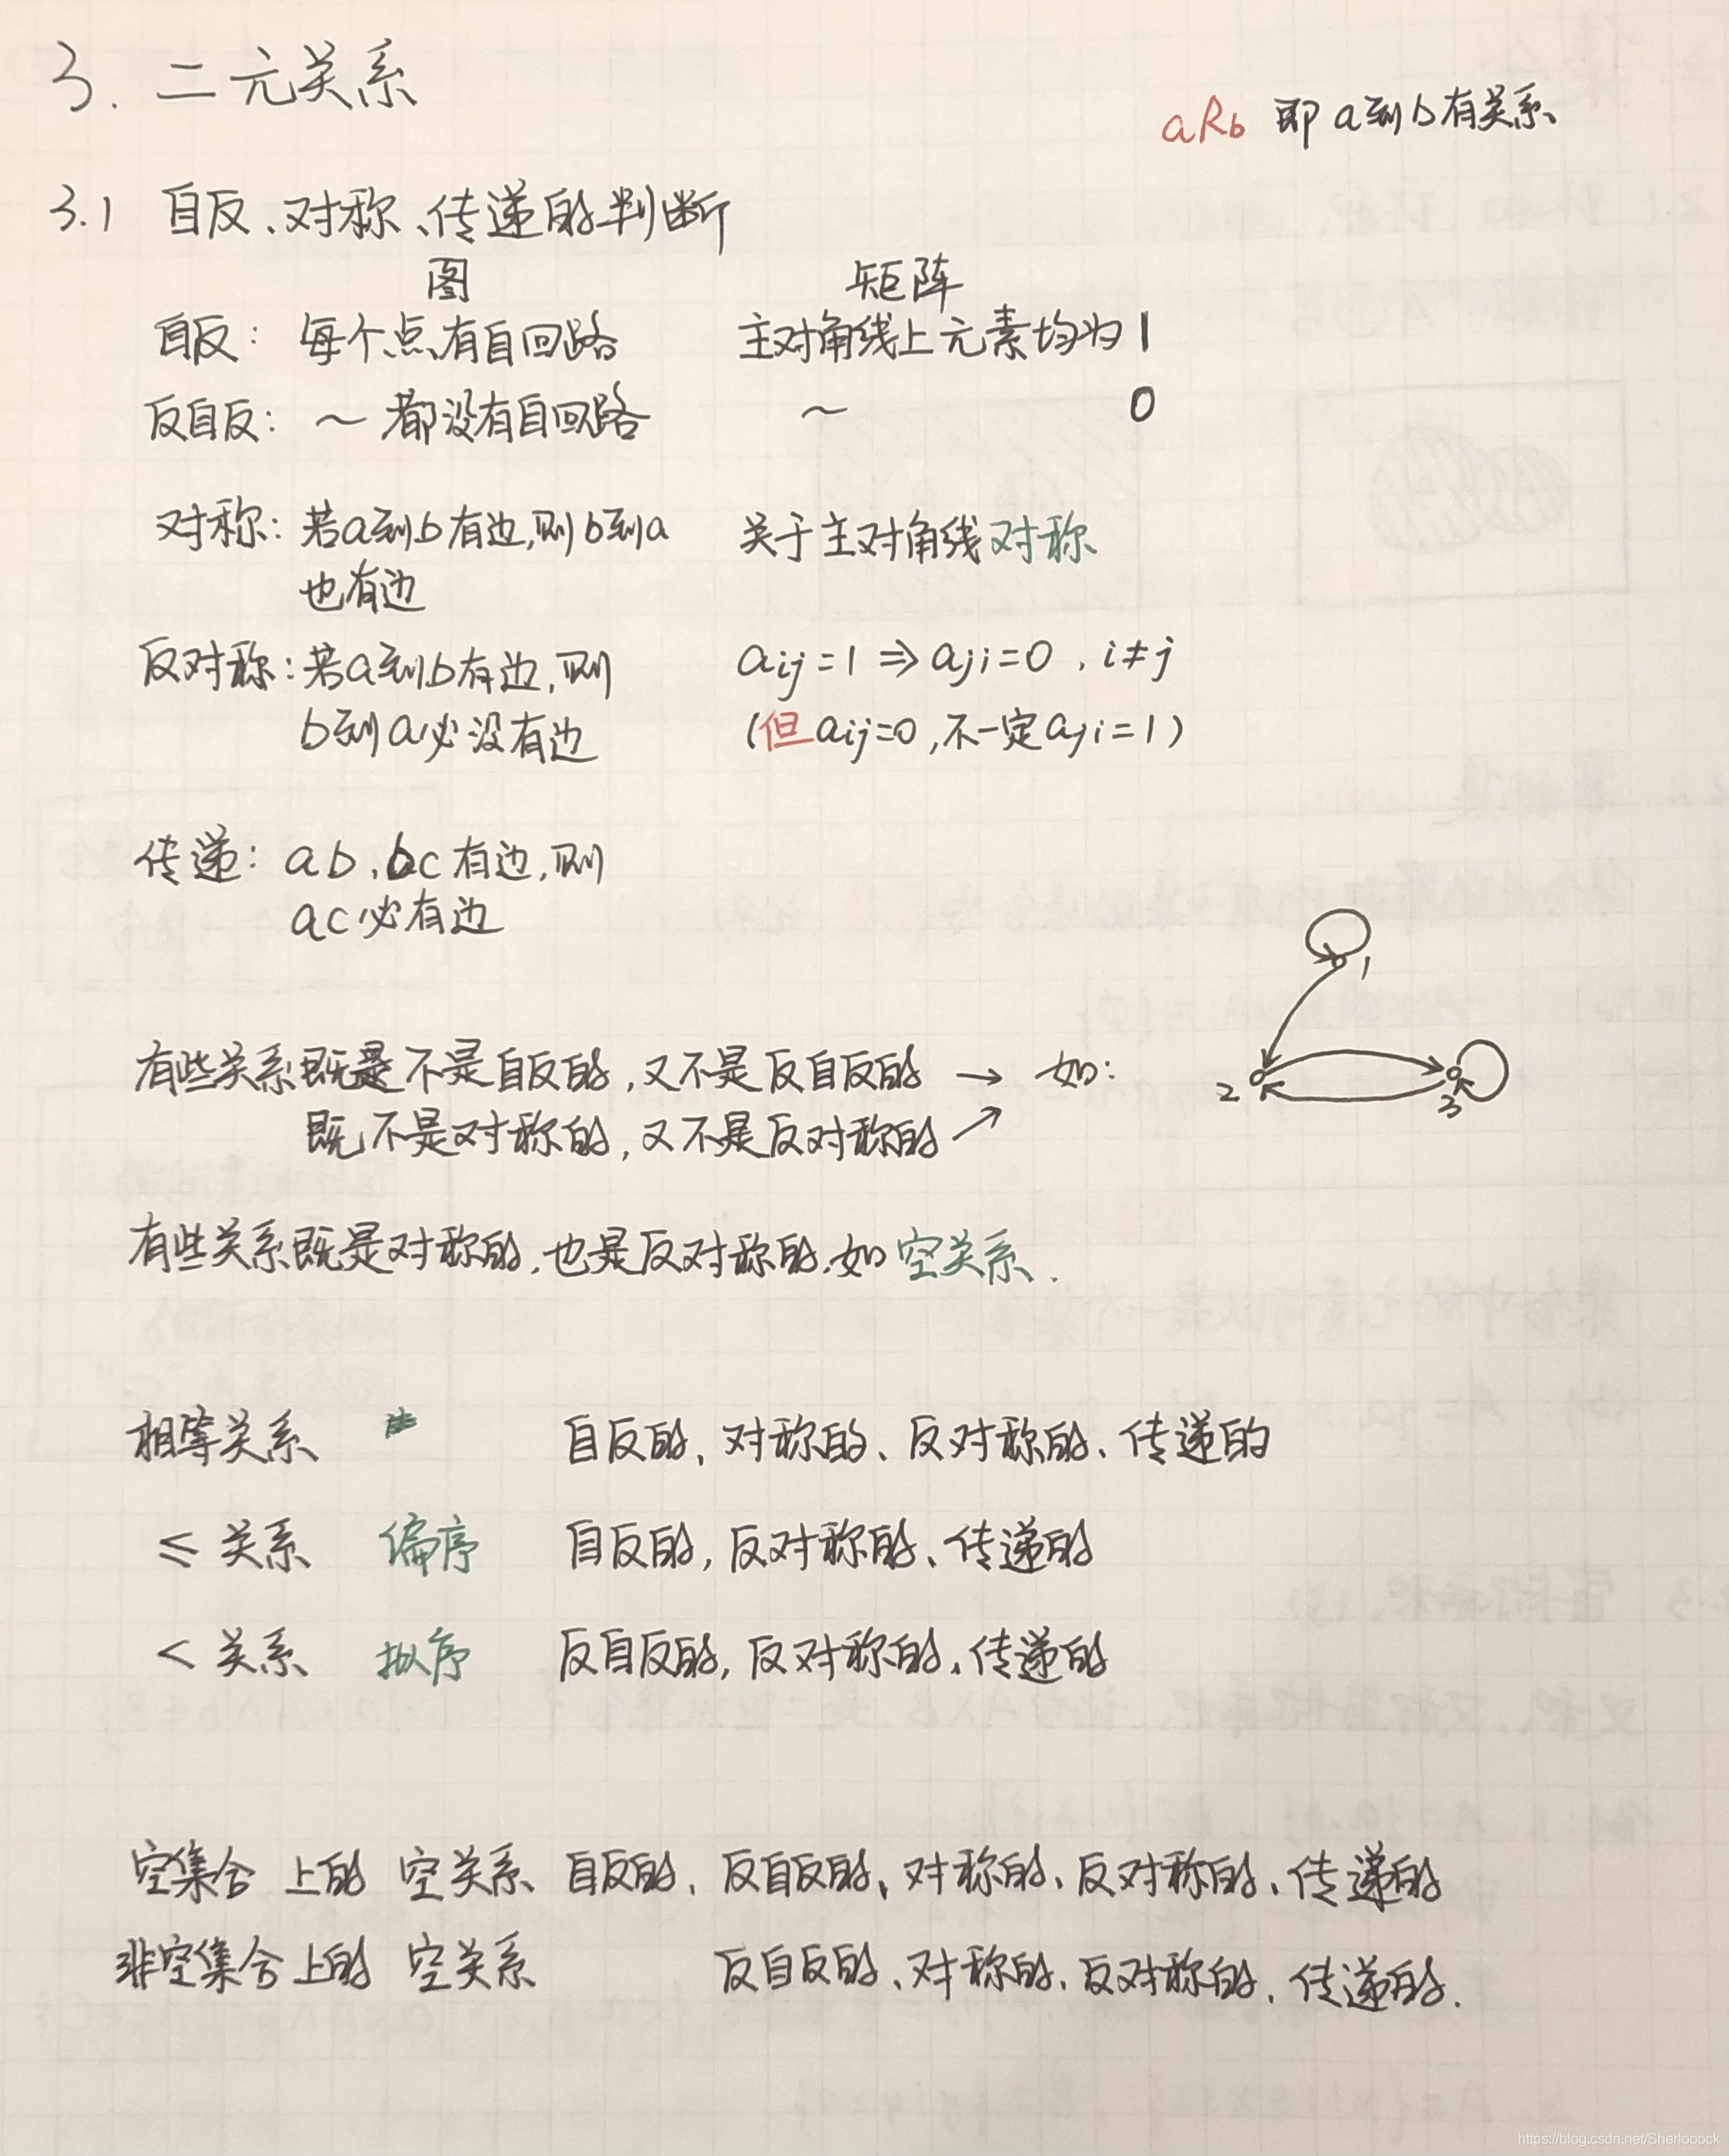 3. 二元关系
aRb 即 a到b有关系
3.1 自反、对称、传递的判断
图 矩阵
自反: 每个点有自回路 主对角线上元素均为1
反自反: ～ 都没有自回路 ～ 0
对称: 若a到b有边,则b到a 关于主对角线对称
也有边
反对称: 若a到b有边,则 aij=1 ⇒ aji=0 , i≠j
b到a必没有边 (但aij=0,不一定aji=1)
传递: ab、bc有边,则
ac必有边
1
2
3
有些关系既是不是自反的,又不是反自反的 → 如:
既不是对称的,又不是反对称的 ↗
有些关系既是对称的,也是反对称的.如 空关系.
相等关系 自反的, 对称的、反对称的、传递的
≤ 关系 偏序 自反的, 反对称的、传递的
< 关系 拟序 反自反的, 反对称的、传递的
空集合 上的 空关系 自反的、反自反的、对称的、反对称的、传递的
非空集合上的 空关系 反自反的、对称的、反对称的、传递的.
https://blog.csdn.net/Sherlooock